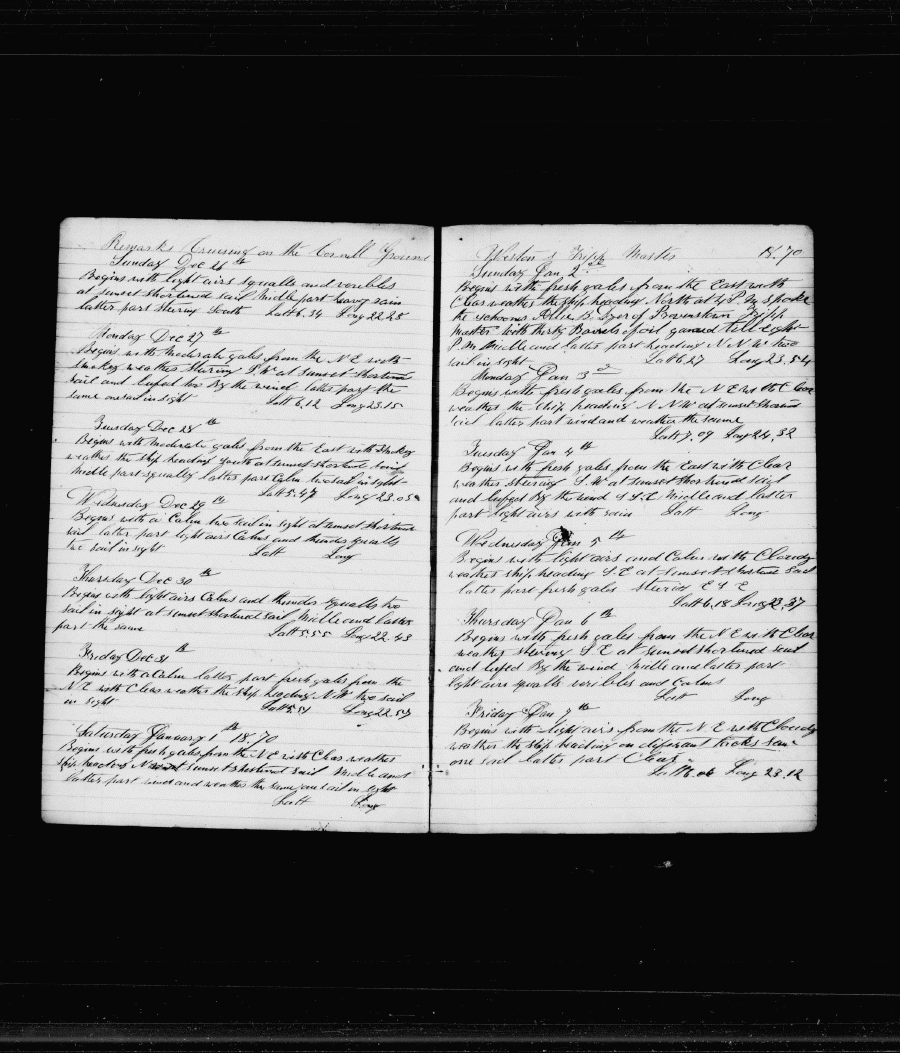 Remarks Cruising on the Cornell Ground
Sunday Dec 26th
Begins with light airs squalls and veribles
at sunset shortened sail Middle part heavy rain
latter part stering South Latt 6.34 Long 22.25
Monday Dec 27th
Begins with moderate gales from the N E with
smokey weather stering S.W at sunset shortened
sail and lufed too by the wind latter part the
same one sail in sight Latt 6.12 Long 23.15
Tuesday Dec 28th
Begins with Moderate gales from the East with Smokey
weather the ship heading South at sunset shortend sail
Middle part squally latter part Calm two sail in sight
Latt 5.47 Long 23.05
Wednesday Dec 29th
Begins with a Calm two sail in sight at sunset shortened
sail latter part light airs Calms and thunder squalls
two sail in sight Latt Long
Thursday Dec 30th
Begins with light airs Calms and thunder squalls two
sail in sight at sunset shortened sail Middle and latter
part the same Latt 5.55 Long 22.43
Friday Dec 31th
Begins with a Calm latter part fresh gales from the
N.E with Clear weather the ship heading N.W two sail
in sight Latt 5.51 Long 22.57
Saturday January 1th 18.70
Begins with fresh gales from the N E with Clear weather
ship heading N at sunset shortened sail Middle and
latter part wind and weather the same one sail in sight
Latt Long
Tripp Master 18.70
Sunday Jan 2nd
Begins with fresh gales from the East with
Clear weather the ship heading North at 4 P.M spoke
the schooner Allie B. Dyer of Provinstown Tripp
Master With thirty Barrels of oil gamed till eight
P.M Middle and latter part heading N N W two
sail in sight Latt 6.27 Long 23.54
Monday Jan 3d
Begins with fresh gales from the N E with Clear
weather the ship heading N N W at sunset shortened
sail latter part wind and weather the same
Latt 7.09 Long 24.32
Tuesday Jan 4th
Begins with fresh gales from the East with Clear
weather stering S.W at sunset shortened sail
and lufed By the wind S S.E Middle and latter
part light airs with rain Latt Long
Wednesday Jan 5th
Begins with light airs and Calm with Cloudy
weather ship heading S.E at sunset shortened sail
latter part fresh gales sterid E S E
Latt 6.18 Long 23.37
Thursday Jan 6th
Begins with fresh gales from the N E with Clear
weather stering S E at sunset shortened sail
and lufed By the wind Middle and latter part
light airs squalls veribles and Calms
Latt Long
Friday Jan 7th
Begins with light airs from the N E with Cloudy
weather the ship heading on diferant tacks saw
one sail latter part Clear
Latt 6.06 Long 23.12